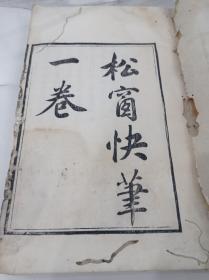 松窗快筆
一卷